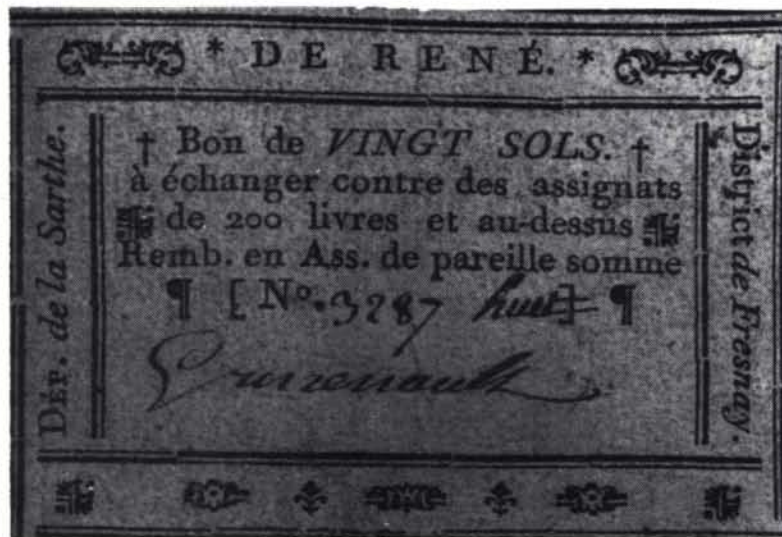 * DE RENÉ. *
DÉP. de la Sarthe.
† Bon de VINGT SOLS. †
à échanger contre des assignats
de 200 livres et au-dessus
Remb. en Ass. de pareille somme
¶ [ Nº. 3287 ] ¶
District de Fresnay.